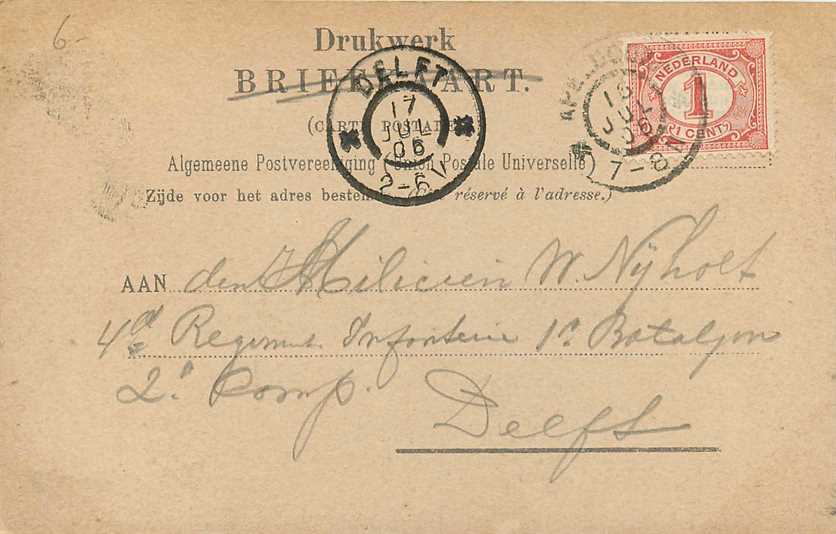 6-
Drukwerk
BRIEFKAART.
(CARTE POSTALE)
Algemeene Postvereeniging (Union Postale Universelle)
Zijde voor het adres bestemd. (Côté réservé à l'adresse.)
DELFT
17
JUL
06
NEDERLAND
1
(1 CENT)
16
JUL
06
7-8N
AAN den Milicien W. Nijholt
4e Regiment Infanterie 1e Bataljon
2e Comp.
Delft